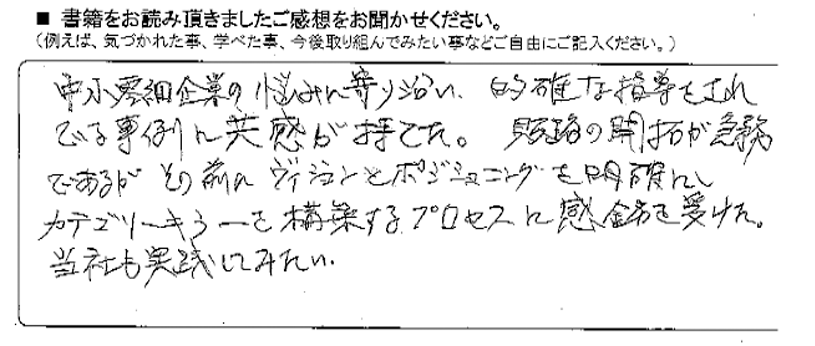 ■ 書籍をお読み頂きましたご感想をお聞かせください。
（例えば、気づかれた事、学べた事、今後取り組んでみたい事などご自由にご記入ください。）
中小零細企業の悩みに寄り沿い、的確な指導をされ
てる事例に共感が持てた。販路の開拓が急務
であるが その前に ヴィジョンとポジショニングを明確にし
カテゴリーキラーを構築するプロセスに感銘を受けた。
当社も実践してみたい。